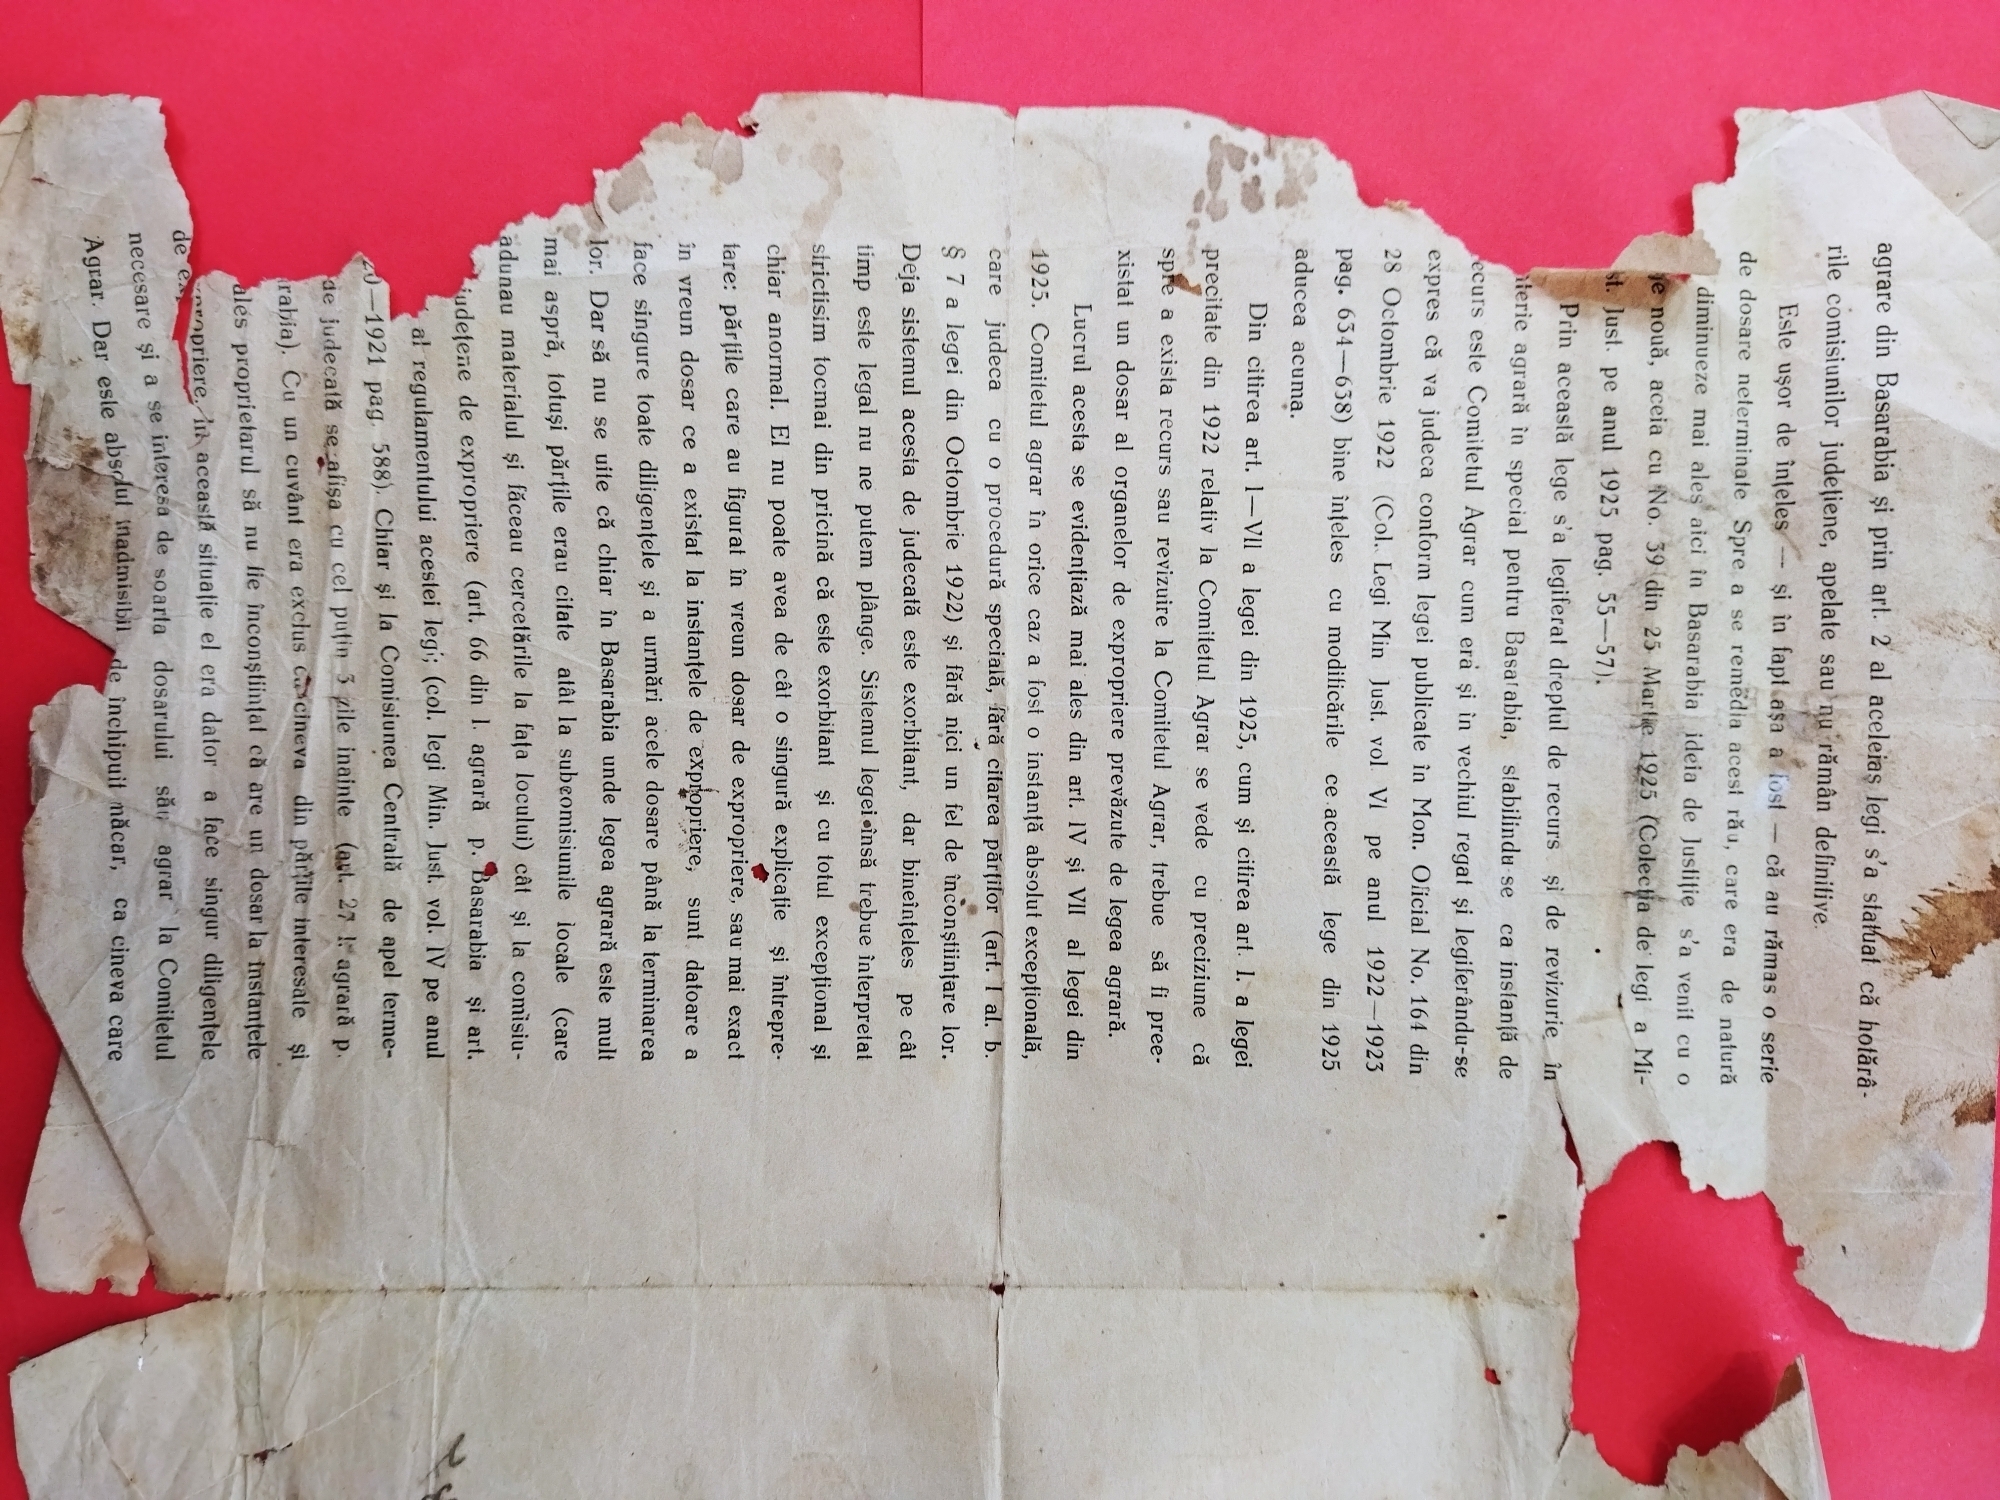 agrare din Basarabia și prin art. 2 al aceleiaș legi s'a statuat că hotărâ-
rile comisiunilor județiene, apelate sau nu rămân definitive.
Este ușor de înțeles — și în fapt așa a fost — că au rămas o serie
de dosare neterminate Spre a se remedia acest rău, care era de natură
diminueze mai ales aici în Basarabia ideia de Justiție s'a venit cu o
nouă, aceia cu No. 39 din 25 Martie 1925 (Colecția de legi a Mi-
Just. pe anul 1925 pag. 55—57).
Prin această lege s'a legiferat dreptul de recurs și de revizurie în
agrară în special pentru Basarabia, stabilindu-se ca instanță de
ecurs este Comitetul Agrar cum era și in vechiul regat și legiferându-se
expres că va judeca conform legei publicate în Mon. Oficial No. 164 din
28 Octombrie 1922 (Col. Legi Min Just. vol. VI pe anul 1922—1923
pag. 634—638) bine înțeles cu modificările ce această lege din 1925
aducea acuma.
Din citirea art. I—VII a legei din 1925, cum și citirea art. I. a legei
precitate din 1922 relativ la Comitetul Agrar se vede cu preciziune că
spre a exista recurs sau revizuire la Comitetul Agrar, trebue să fi pree-
xistat un dosar al organelor de expropriere prevăzute de legea agrară.
Lucrul acesta se evidențiază mai ales din art. IV și VII al legei din
1925. Comitetul agrar în orice caz a fost o instanță absolut excepțională,
care judeca cu o procedură specială, fără citarea părților (art. I al. b.
§ 7 a legei din Octombrie 1922) și fără nici un fel de înconștiințare lor.
Deja sistemul acesta de judecată este exorbitant, dar bineînțeles pe cât
timp este legal nu ne putem plânge. Sistemul legei însă trebue interpretat
strictisim tocmai din pricină că este exorbitant și cu totul excepțional și
chiar anormal. El nu poate avea de cât o singură explicație și întrepre-
tare: părțile care au figurat în vreun dosar de expropriere, sau mai exact
în vreun dosar ce a existat la instanțele de expropriere, sunt datoare a
face singure toate diligențele și a urmări acele dosare până la terminarea
lor. Dar să nu se uite că chiar în Basarabia unde legea agrară este mult
mai aspră, totuși părțile erau citate atât la subcomisiunile locale (care
adunau materialul și făceau cercetările la fața locului) cât și la comisiu-
județene de expropriere (art. 66 din l. agrară p. Basarabia și art.
al regulamentului acestei legi; (col. legi Min. Just. vol. IV pe anul
—1921 pag. 588). Chiar și la Comisiunea Centrală de apel terme-
de judecată se afișa cu cel puțin 3 zile inainte (art. 27 l. agrară p.
rabia). Cu un cuvânt era exclus ca cineva din părțile interesate și
ales proprietarul să nu fie înconștiințat că are un dosar la instanțele
de expropriere. In această situație el era dator a face singur diligențele
necesare și a se interesa de soarta dosarului său agrar la Comitetul
Agrar. Dar este absolut inadmisibil de închipuit măcar, ca cineva care